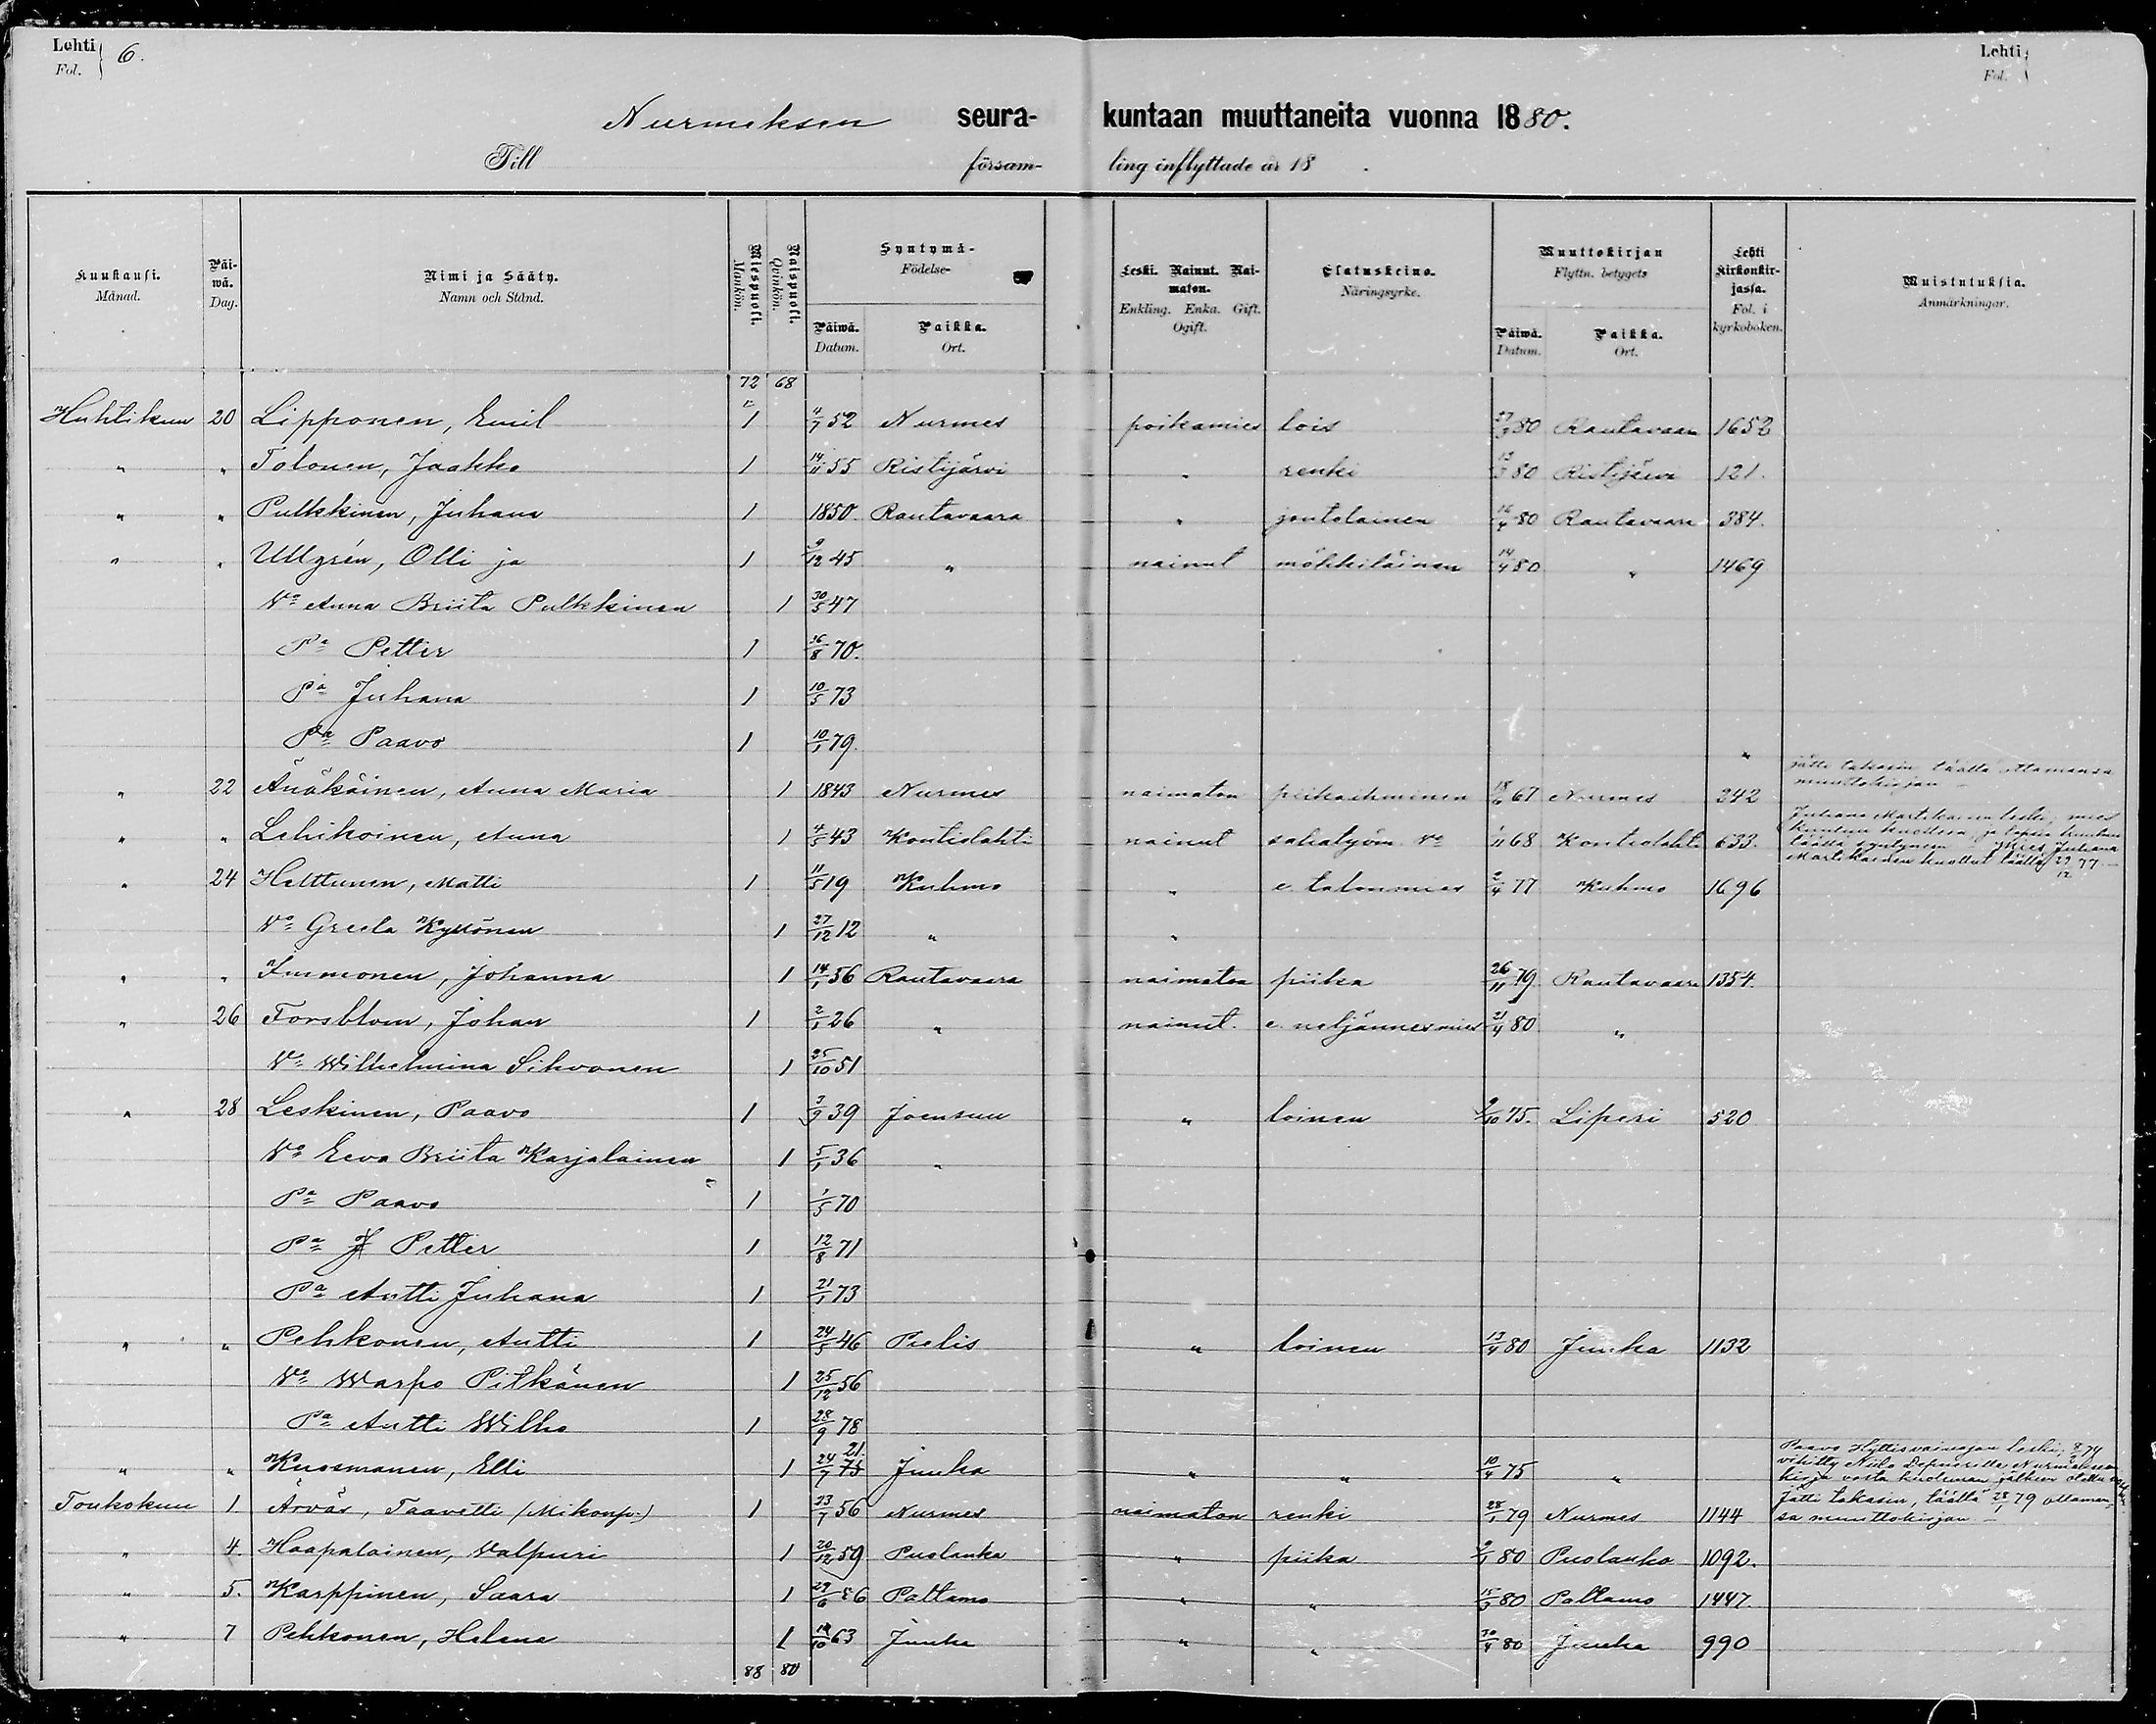 Lehti Fol. 6.
Lehti Fol.
Nurmeksen seura- kuntaan muuttaneita vuonna 1880.
Till försam- ling inflyttade år 18 .
Kuukausi. Månad.
Päiwä. Dag.
Nimi ja Sääty. Namn och Stånd.
Miespuoli. Mankön.
Naispuoli. Qvinkön.
Syntymä- Födelse-
Päiwä. Datum.
Paikka. Ort.
Leski. Nainut. Naimaton. Enkling. Enka. Gift. Ogift.
Elatuskeino. Näringsyrke.
Muuttokirjan Flyttn. betygets
Päiwä. Datum.
Paikka. Ort.
Lehti kirkonkirjassa. Fol. i kyrkoboken.
Muistutuksia. Anmärkningar.
72 68
Huhtikuu 20 Lipponen, Emil 1 4/7 52 Nurmes poikamies lois 27/3 80 Rautavaara 1652
" " Tolonen, Jaakko 1 14/11 55 Ristijärvi " renki 13/3 80 Ristijärvi 121.
" " Pulkkinen, Juhana 1 1850. Rautavaara " joutolainen 16/4 80 Rautavaara 384.
" " Ullgrén, Olli ja 1 9/12 45 " nainut mökkiläinen 14/4 80 " 1469
Vo Anna Briita Pulkkinen 1 30/5 47
Pa Petter 1 16/8 70.
Pa Juhana 1 10/5 73
Pa Paavo 1 10/1 79. "
" 22 Änäkäinen, Anna Maria 1 1843 Nurmes naimaton piikaihminen 18/6 67 Nurmes 242 jätti takasin täältä ottamansa muuttokirjan
" " Lehikoinen, Anna 1 4/5 43 Kontiolahti nainut sahatyöm. Vo 1/11 68 Kontiolahti 633. Juhana Martikaisen leski, mies kuuluu kuolleen, ja lapsia kuuluu täällä syntyneen - Mies Juhana Martikainen kuollut täällä 29/12 77.
" 24 Helttunen, Matti 1 11/5 19 Kuhmo " e. talonmies 2/4 77 Kuhmo 1696
Vo Greeta Kyllönen 1 27/12 12 " "
" " Immonen, Johanna 1 14/1 56 Rautavaara naimaton piika 26/11 79 Rautavaara 1354.
" 26 Forsblom, Johan 1 2/1 26 " nainut. e. neljännesmies 21/4 80 "
Vo Wilhelmina Sihvonen 1 25/10 51
" 28 Leskinen, Paavo 1 3/9 39 Joensuu " loinen 9/10 75. Liperi 520
Vo Eeva Briita Karjalainen 1 5/1 36 "
Pa Paavo 1 1/5 70
Pa J Petter 1 12/8 71
Pa Antti Juhana 1 21/1 73
" " Pehkonen, Antti 1 24/5 46 Pielis " loinen 13/4 80 Juuka 1132
Vo Warpo Pitkänen 1 25/12 56
Pa Antti Wilho 1 28/9 78
" " Kuosmanen, Elli 1 24/7 75 21. Juuka " " 10/4 75 " Paavo Hyttisvainajan leski, 8/3 74 vihitty Niilo
Toukokuu 1. Ärväs, Taavetti (Mikonp.) 1 23/7 56 Nurmes naimaton renki 28/1 79 Nurmes 1144 Jätti takasin, täältä 28/1 79 ottamansa muuttokirjan
" 4. Haapalainen, Valpuri 1 20/12 59 Puolanka " piika 9/1 80 Puolanko 1092.
" 5. Karppinen, Saara 1 29/6 56 Paltamo " " 15/3 80 Paltamo 1447.
" 7 Pehkonen, Helena 1 18/10 63 Juuka " " 30/4 80 Juuka 990
88 80